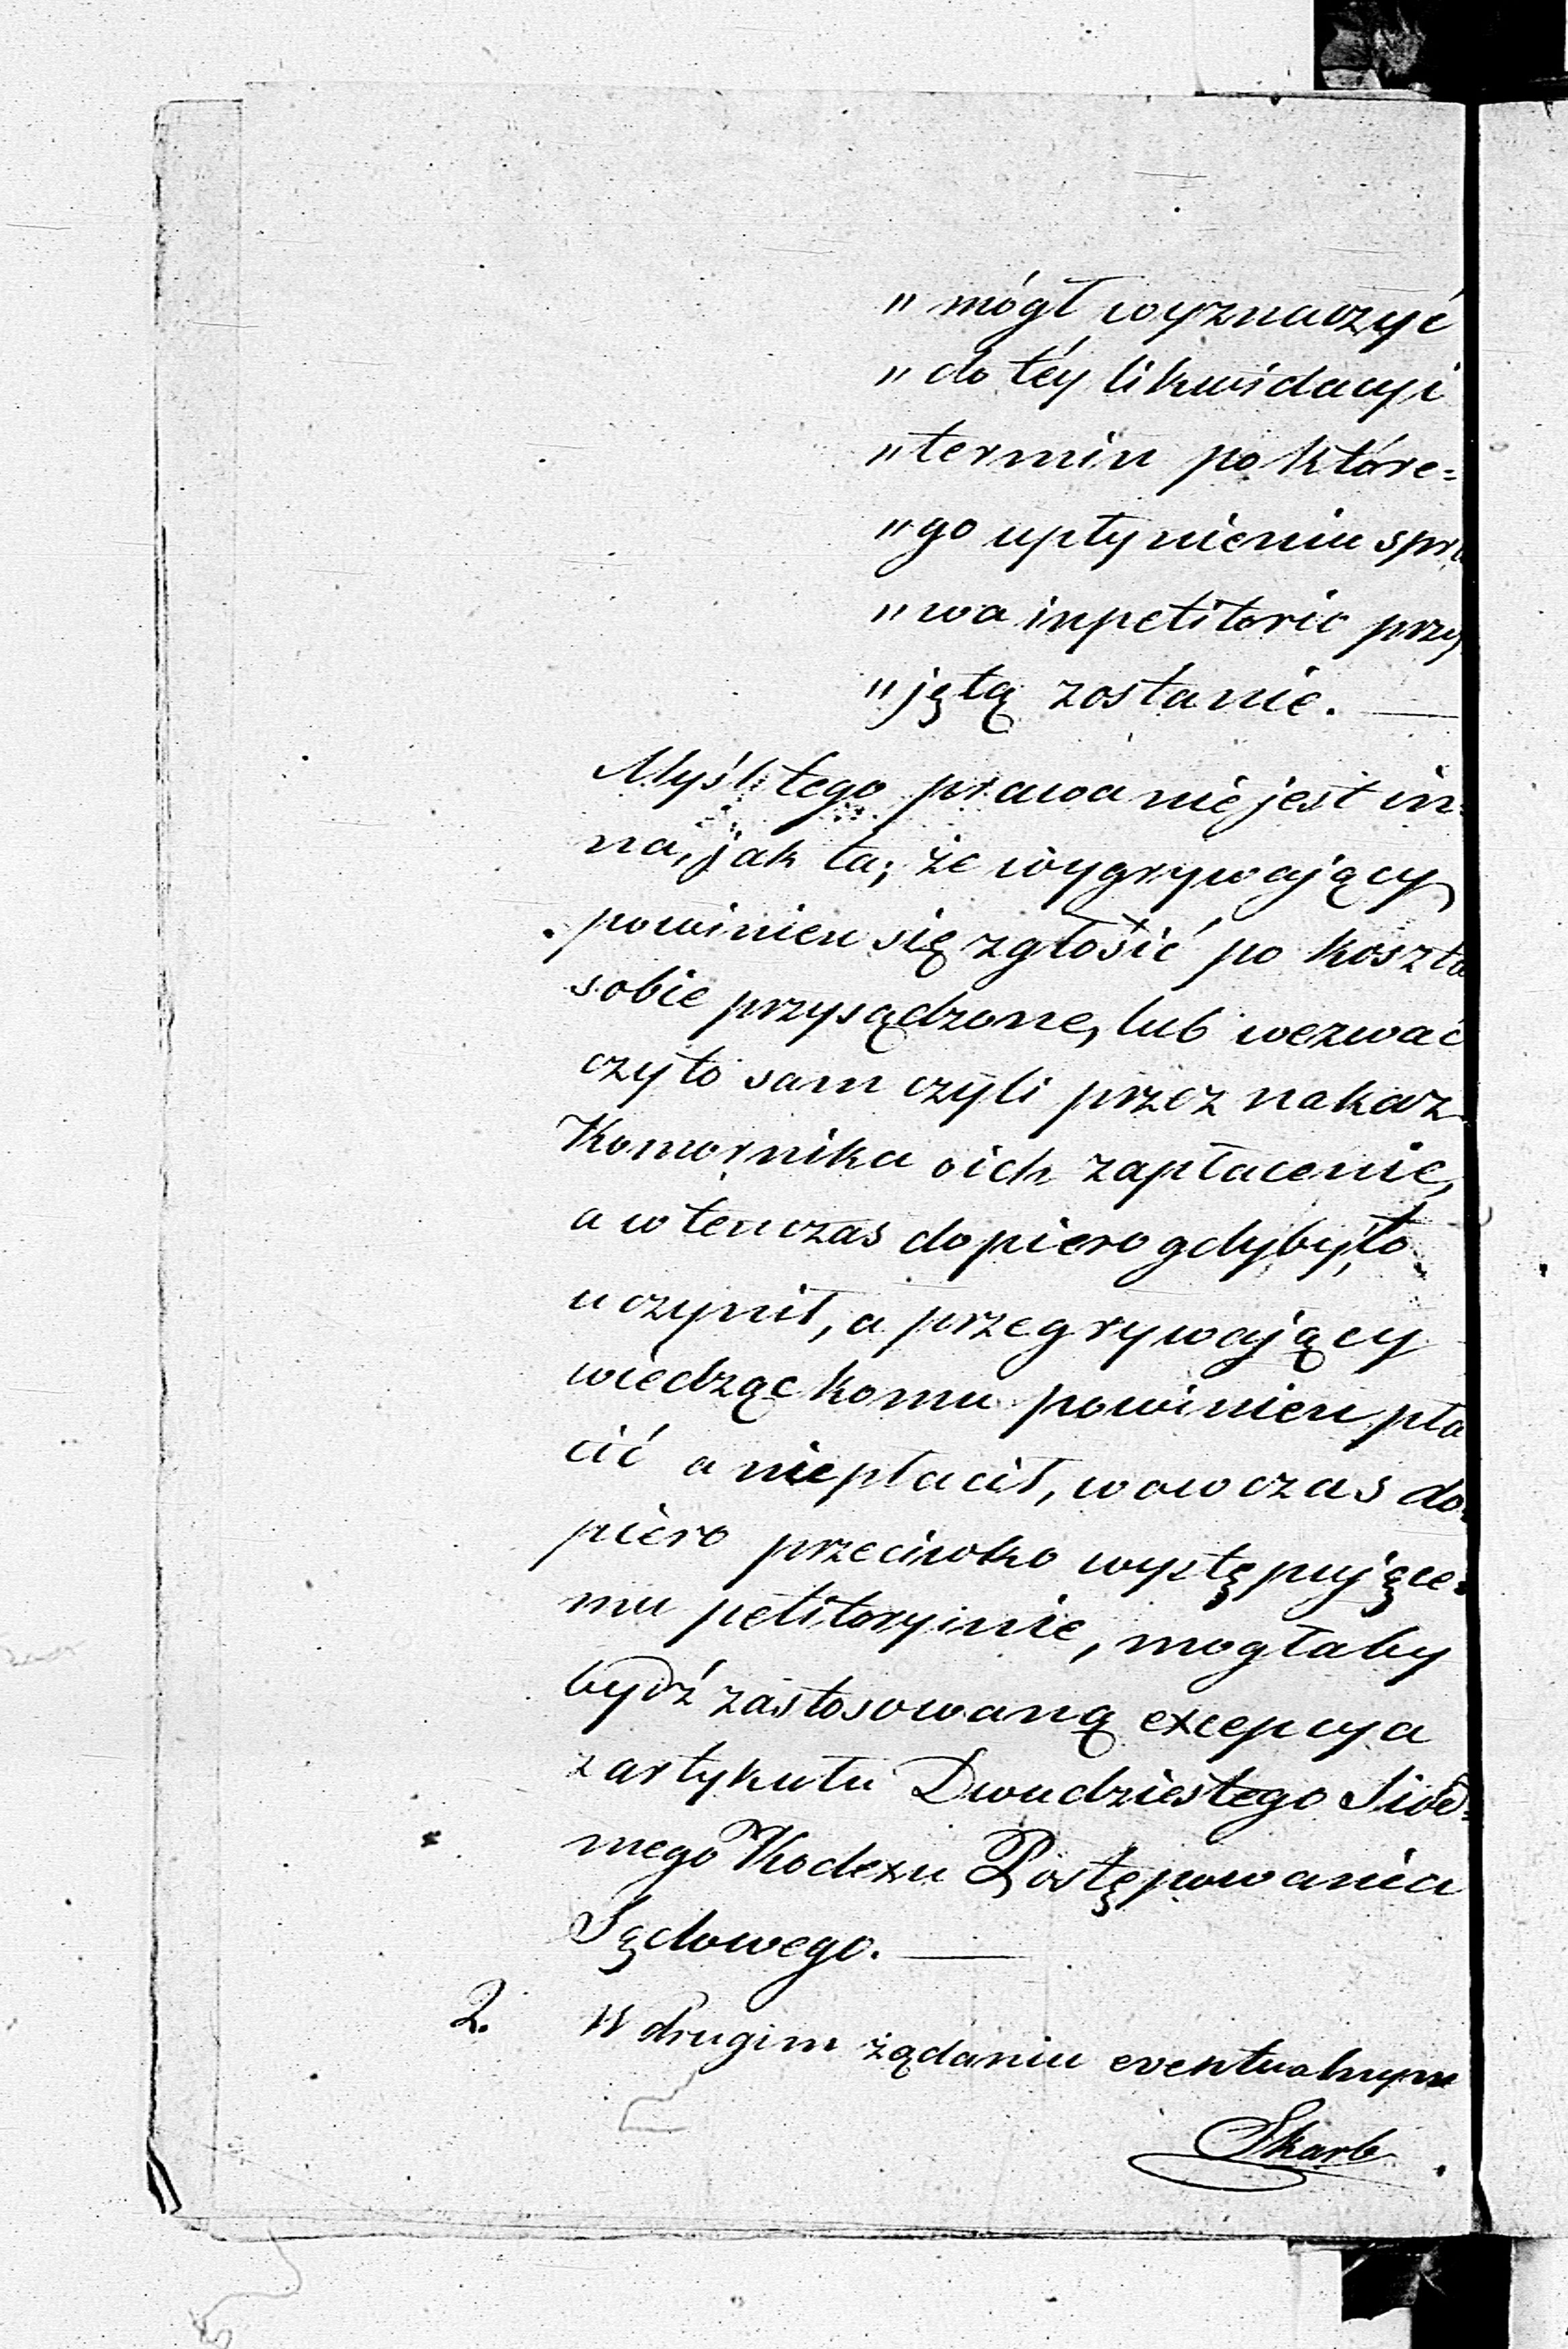 „ mógł wyznaczyć
„ do téy likwidacyi
„ termin po które=
„ go upłynieniu spra
„ wa inpetitorio przy
„ jętą zostanie. —
Myśl tego prawa nie jest in=
na, jak ta; że wygrywający
powinien się zgłosić po koszta
sobie przysądzone, lub wezwać
czy to sam czyli przez nakaz
Komornika o ich zapłacenie,
a wtenczas dopiero gdyby to
uczynił, a przegrywający
wiedząc komu powinien pła
cić a niepłacił, wowczas do=
piero przeciwko występujące=
mu petitoryinie, mogłaby
bydź zastosowaną excepcya
z artykułu Dwudziestego Siód=
mego Kodexu Postępowania
Sądowego. —
2. W drugim żądaniu eventualnym
Skarb